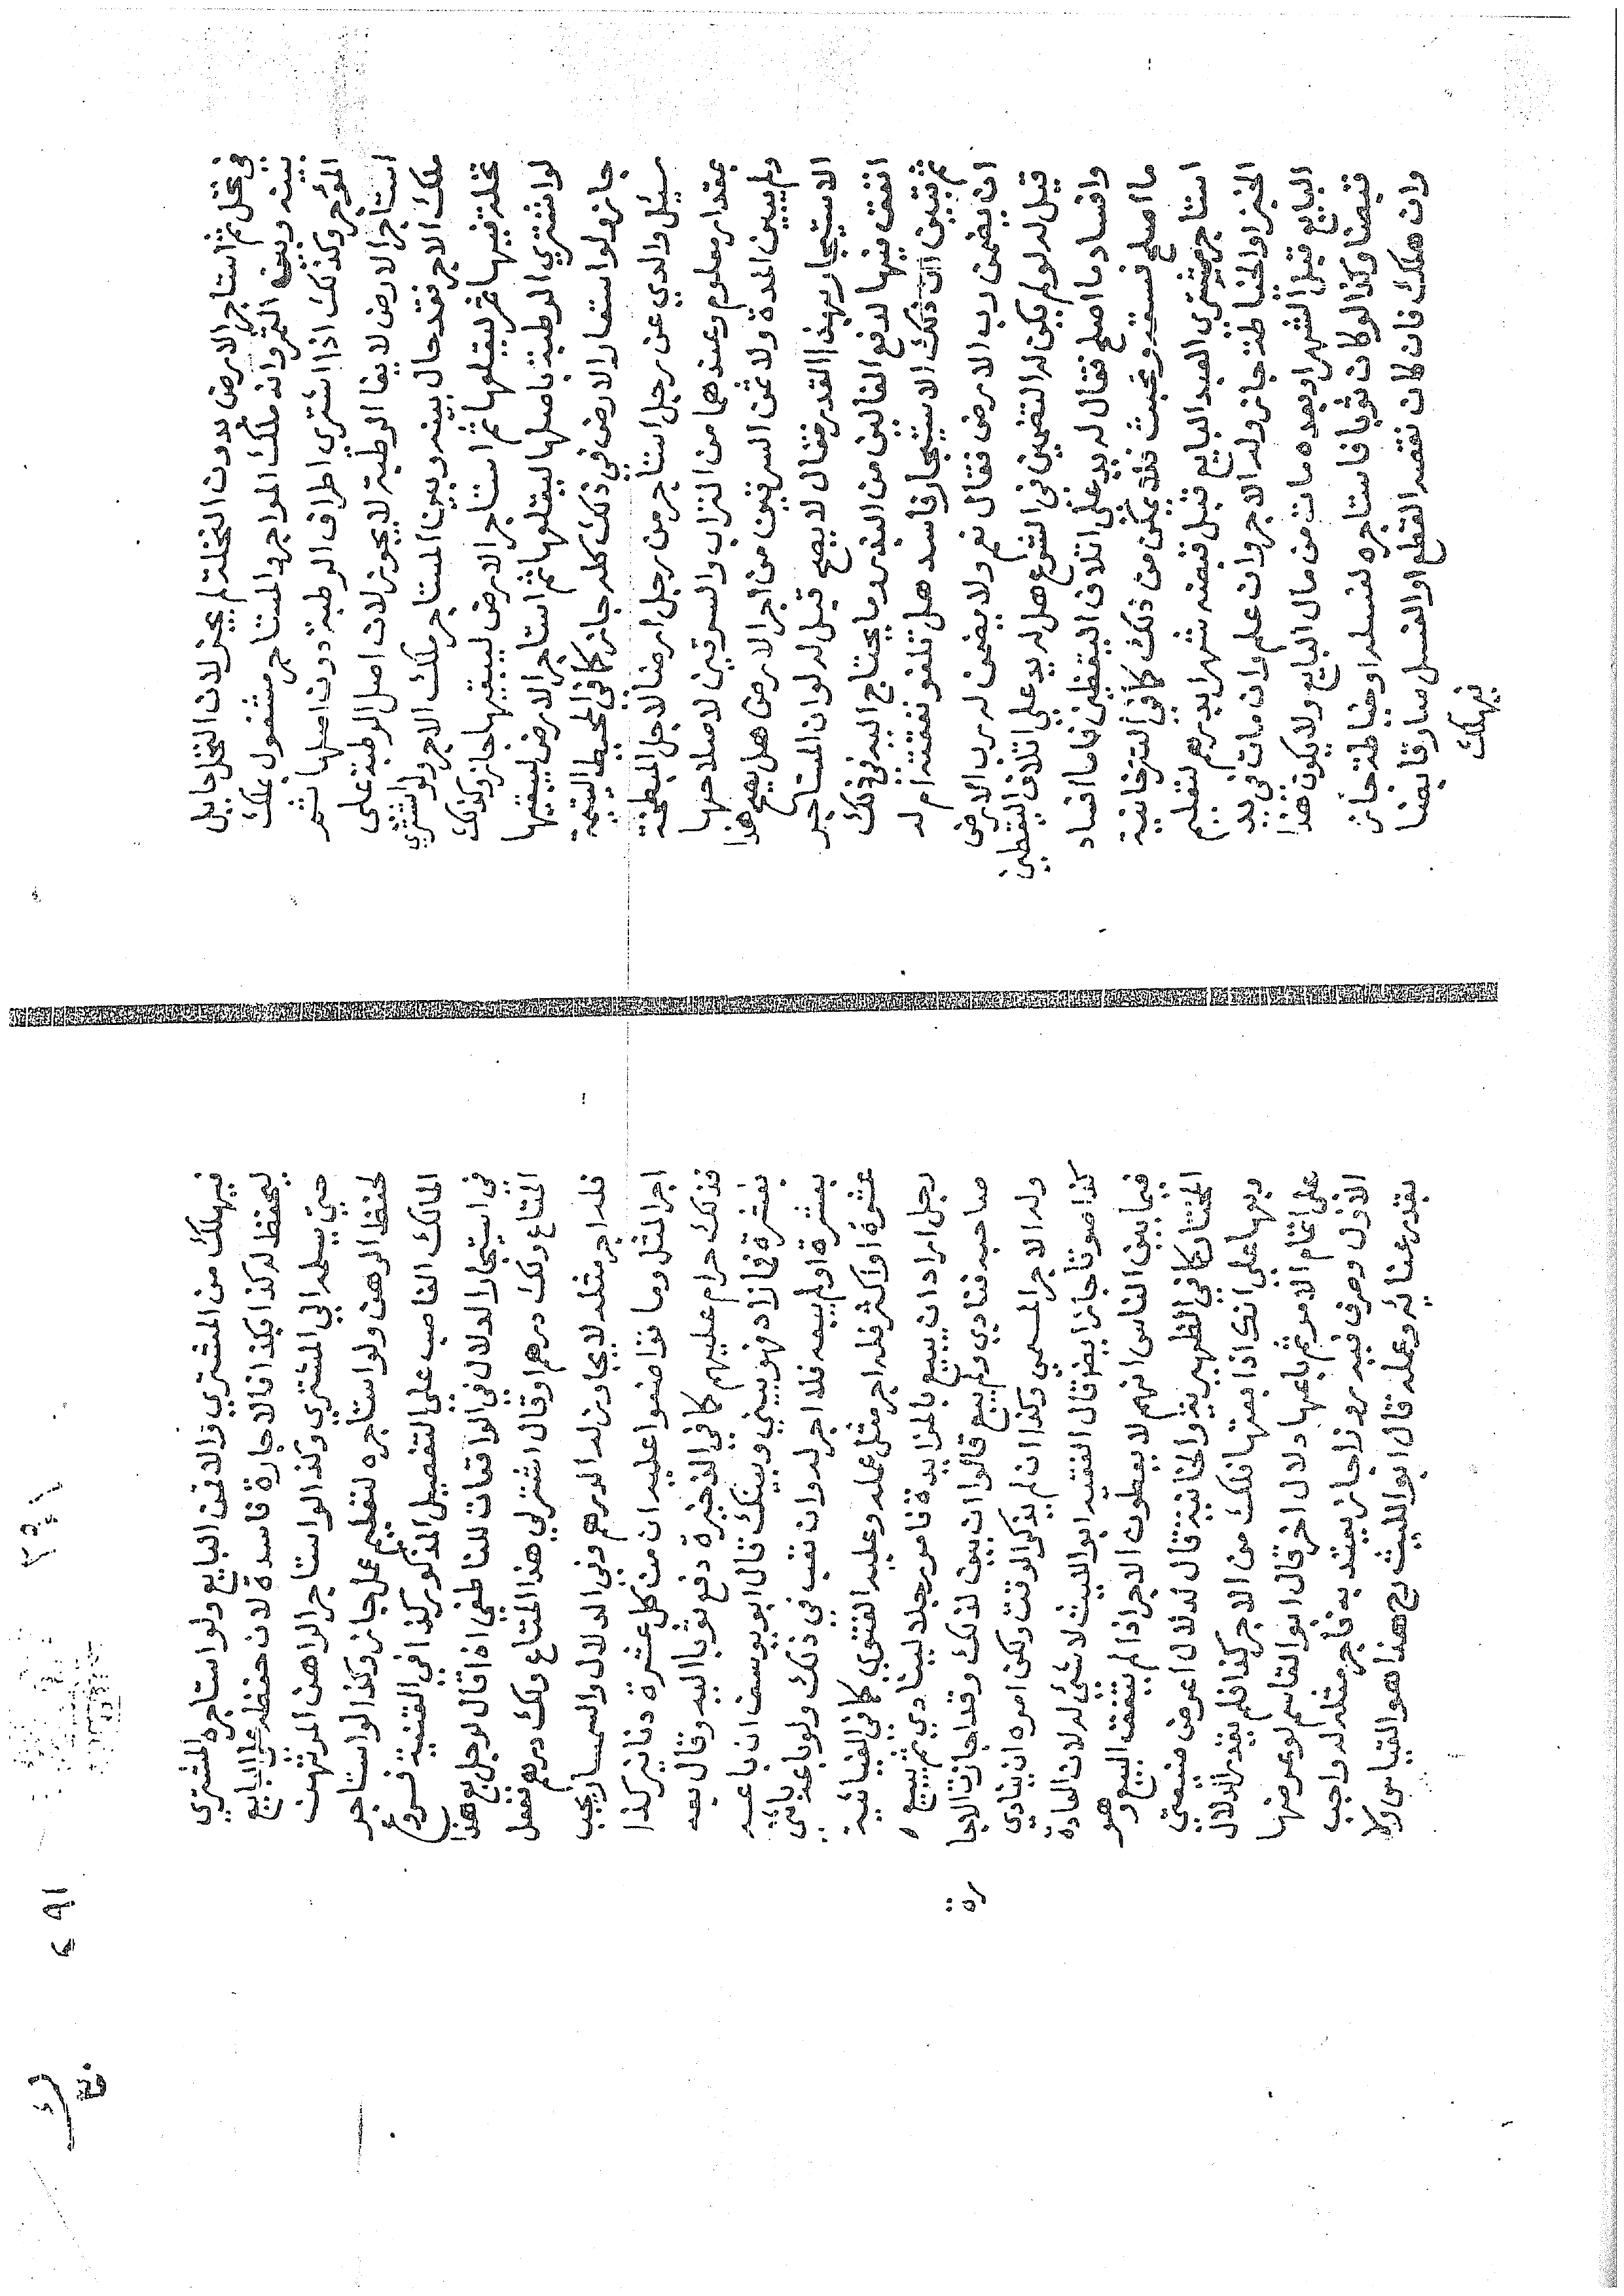 فى نخل ثم استاجر الارض بدون النخلة لم يجز لان النخل حايل
بينه وبين الثمر وانه ملك المواجر والمستاجر مشغول بملك
المؤجر وكذلك اذا اشترى اطراف الرطبة دون اصلها ثم
استاجر الارض لابقا الرطبة لا يجوز لان اصل الرطبة على
ملك الاجر فقد حال بينه وبين المستاجر ملك الاجر ولو اشترى
نخلة فيها ثمر ليقلعها ثم استاجر الارض ليبقيها جاز وكذلك
لو اشترى الرطبة باصلها ليقلعها ثم استاجر الارض ليبقيها
جاز ولو استعار الارض في ذلك كله جاز كما في المحيط اليتيمة
سيئل والدي عن رجل استاجر من رجل ارضا لاجل المبطخة
بمقدار معلوم وعندهما من التراب والسرقين لاصلاحها
ولم يبين المدة ولا ثمن السرقين من اجر الارض هل يصح هذا
الاستيجار بهذا القدر فقال لا يصح قيل له لو ان المستاجر
انفق فيها لدفع الفاليز من البذر وما يحتاج اليه في ذلك
ثم تبين ان ذلك الاستيجار فاسد هل تلغو نفقته ام له
ان يضمن رب الارض فقال نعم ولا يضمن له رب الارض
قيل له لو لم يكن له التضمين فى الشرع هل له يد على اتلاف اليقطين
وافساد ما اصلح فقال له يد على اتلاف اليقطين فاما افساد
ما اصلح فسفه وعبث فلا يمكن من ذلك كما في التترخانية
استاجر مشترى العبد البايع قبل قبضه شهرا بدرهم لتعليم
الخبز او الخياطة جاز وله الاجر وان علم وان مات فى يد
البايع قبل الشهر او بعده مات من مال البايع ولا يكون هذا
قبضا وكذا لو كان ثوبا فاستاجره لغسله او خياطته جاز
وان هلك فان كان نقصه القطع او الغسل صار قابضا
فيهلك
فيهلك من المشتري والا فمن البايع ولو استاجره المشتري
ليحفظ له كذا بكذا فالاجارة فاسدة لان حفظه على البايع
حتى يسلمه الى المشتري وكذا لو استاجر الراهن المرتهن
لحفظ الرهن ولو استاجره لتعليم عمل جاز وكذا لو استاجر
المالك الغاصب على التفصيل المذكور كذا في القنية فروع
فى استيجار الدلال في الواقعات للناطفي اذا قال لرجل بع هذا
المتاع ولك درهم او قال اشتر لي هذا المتاع ولك درهم ففعل
فله اجر مثله لا يجاوز له الدرهم وفي الدلال والسمسار يجب
اجر المثل وما تواضعوا عليه ان من كل عشرة دنانير كذا
فذلك حرام عليهم كما في الذخيرة دفع ثوبا اليه وقال بعه
بعشرة فما زاد فهو بيني وبينك قال ابو يوسف ان باعه
بعشرة او لم يبعه فلا اجر له وان تعب في ذلك ولو باعه باثنى
عشرة او اكثر فله اجر مثل عمله وعليه الفتوى كما في الغياثية
رجل اراد ان يبيع بالمزايدة فامر رجلا لينادي ثم يبيع
صاحبه فنادي ولم يبع قالوا ان بين لذلك وقتا جازت الاجا
رة
وله الاجر المسمي وكذا ان لم يذكر الوقت ولكن امره ان ينادى
كذا صوتا جاز ايضا قال الفقيه ابو الليث لا شئ له لان العادة
فيما بين الناس انهم لا يعطون الاجر اذا لم يتفق البيع وهو
المختار كما في الظهيرية والخانية قال لدلال اعرض ضيعتي
وبعها على انك اذا بعتها فلك من الاجر كذا فلم يقدر الدلال
على اتمام الامر ثم باعها دلال اخر قال ابو القاسم لو عرضها
الاول وصرف فيه روزاجار يعتد به فاجر مثله له واجب
بقدر عنائه وعمله قال ابو الليث رح هذا هو القياس وكا
٢٩١